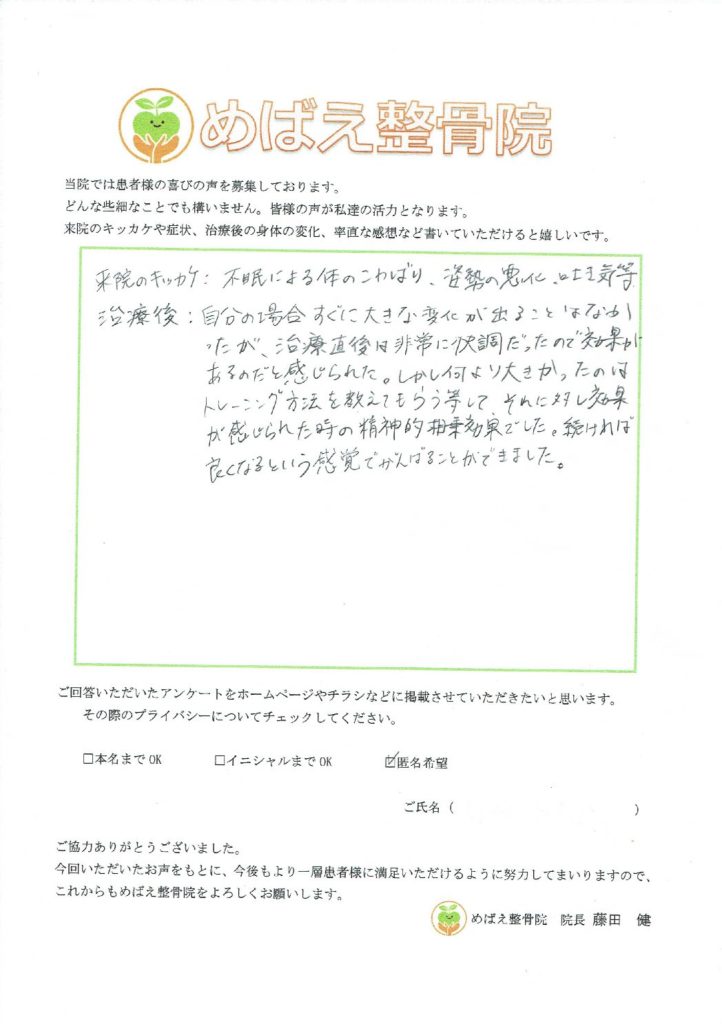 めばえ整骨院
当院では患者様の喜びの声を募集しております。
どんな些細なことでも構いません。皆様の声が私達の活力となります。
来院のキッカケや症状、治療後の身体の変化、率直な感想など書いていただけると嬉しいです。
来院のキッカケ: 不眠による体のこわばり、姿勢の悪化、吐き気等
治療後:自分の場合すぐに大きな変化が出ることはなか
ったが、治療直後は非常に快調だったので効果が
あるのだと感じられた。しかし何より大きかったのは
トレーニング方法を教えてもらう等して、それに対し効果
が感じられた時の精神的相乗効果でした。続ければ
良くなるという感覚でがんばることができました。
ご回答いただいたアンケートをホームページやチラシなどに掲載させていただきたいと思います。
その際のプライバシーについてチェックしてください。
□本名までOK □イニシャルまでOK ☑匿名希望
ご氏名( )
ご協力ありがとうございました。
今回いただいたお声をもとに、今後もより一層患者様に満足いただけるように努力してまいりますので、
これからもめばえ整骨院をよろしくお願いします。
めばえ整骨院 院長 藤田 健